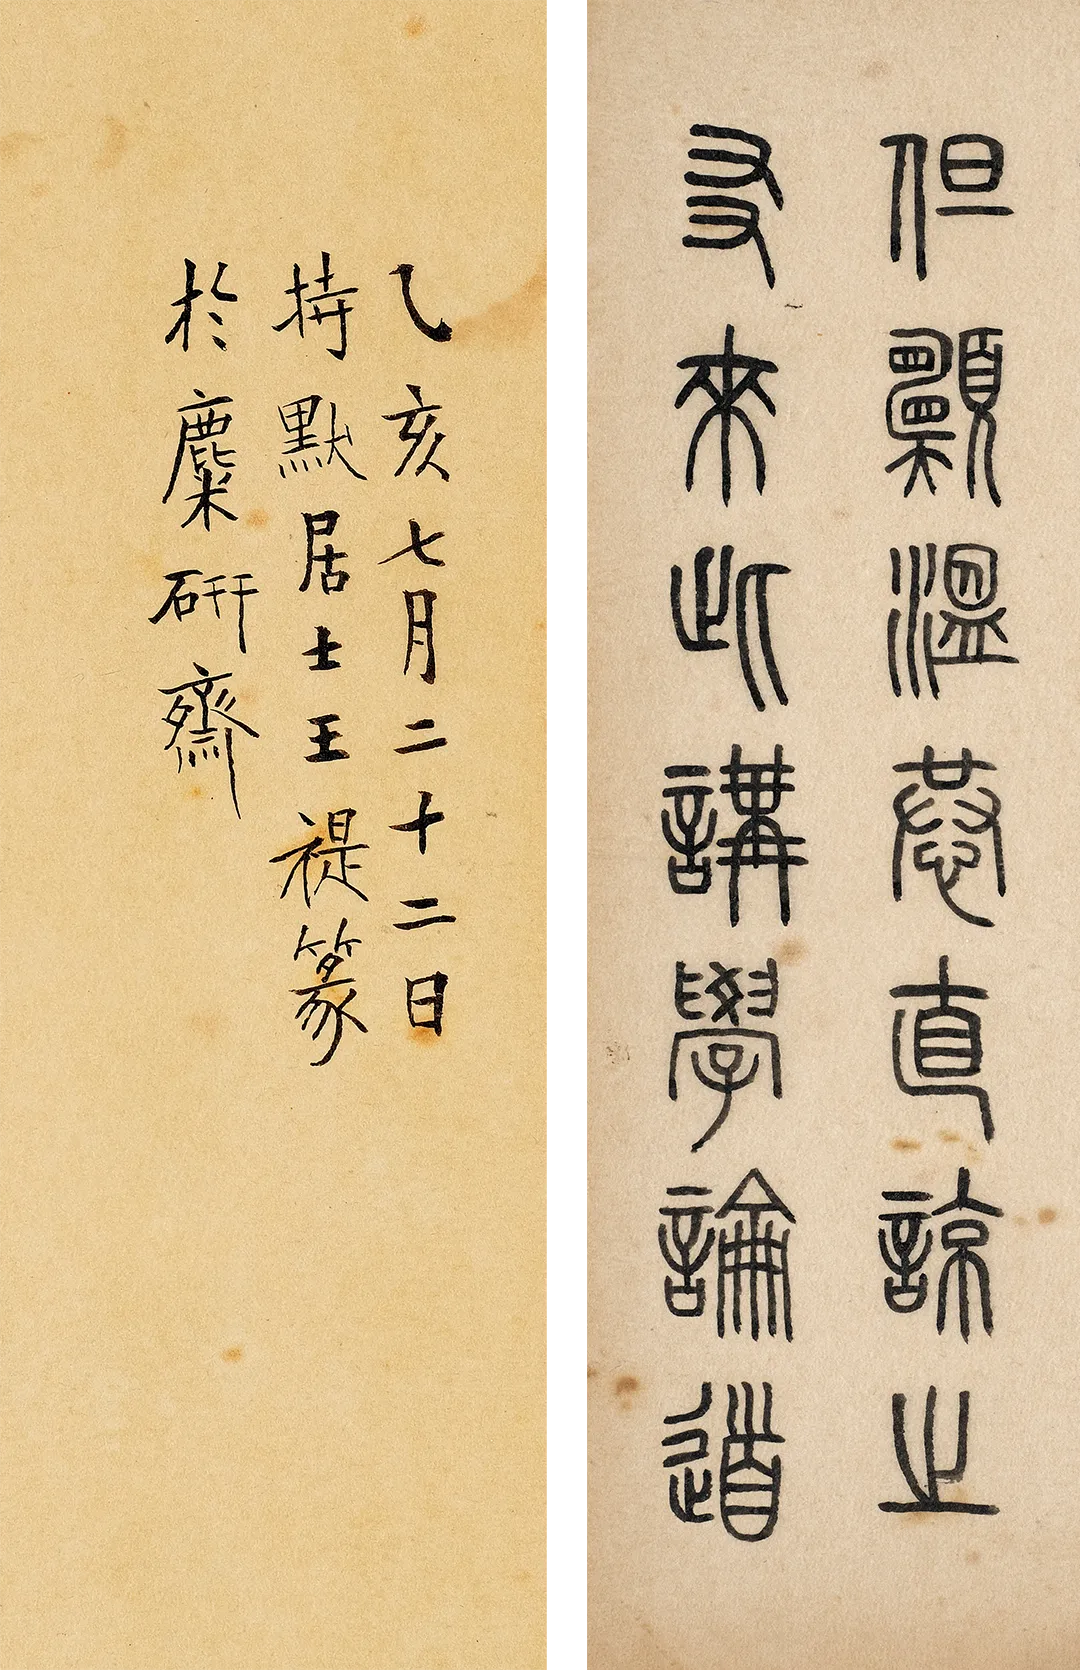 但願溫恭直諒之
友來此講學論道
乙亥七月二十二日
持默居士王禔篆
於麋硏齋